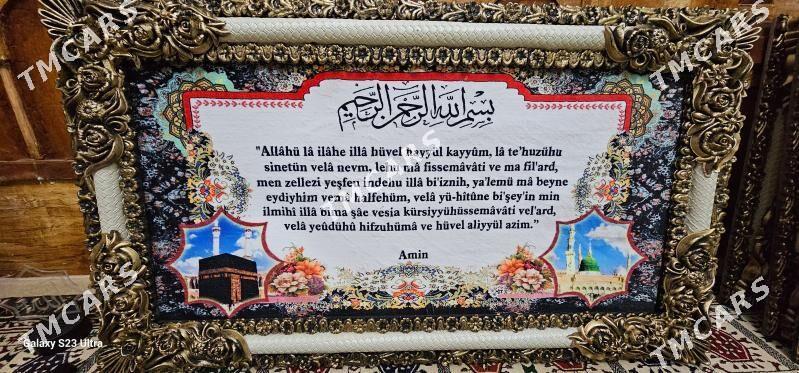 بسم الله الرحمن الرحيم
"Allâhü lâ ilâhe illâ hüvel hayyül kayyûm, lâ te'huzühu
sinetün velâ nevm, lehu mâ fissemâvâti ve ma fil'ard,
men zellezi yeşfeu indehu illâ bi'iznih, ya'lemü mâ beyne
eydiyhim ve mâ halfehüm, velâ yü-hîtûne bi'şey'in min
ilmihî illâ bimâ şâe vesia kürsiyyühüssemâvâti vel'ard,
velâ yeûdühû hifzuhümâ ve hüvel aliyyül azim."
Amin
Galaxy S23 Ultra
TMCARS
TMCARS
TMCARS
TMCARS
TMCARS
TMCARS
TMCARS
TMCARS
TMCARS